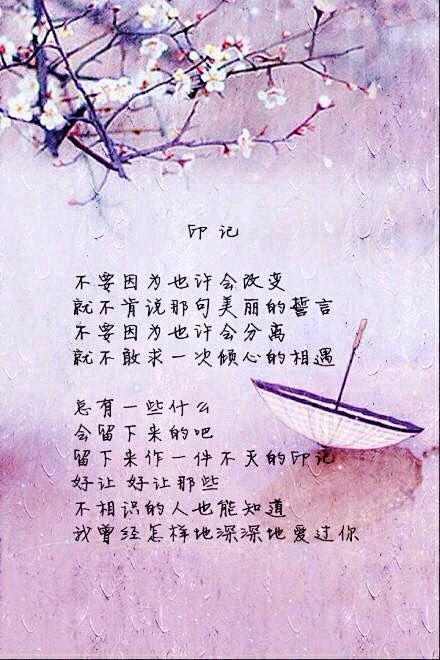 印记
不要因为也许会改变
就不肯说那句美丽的誓言
不要因为也许会分离
就不敢求一次倾心的相遇
总有一些什么
会留下来的吧
留下来作一件不灭的印记
好让 好让那些
不相识的人也能知道
我曾经怎样地深深地爱过你